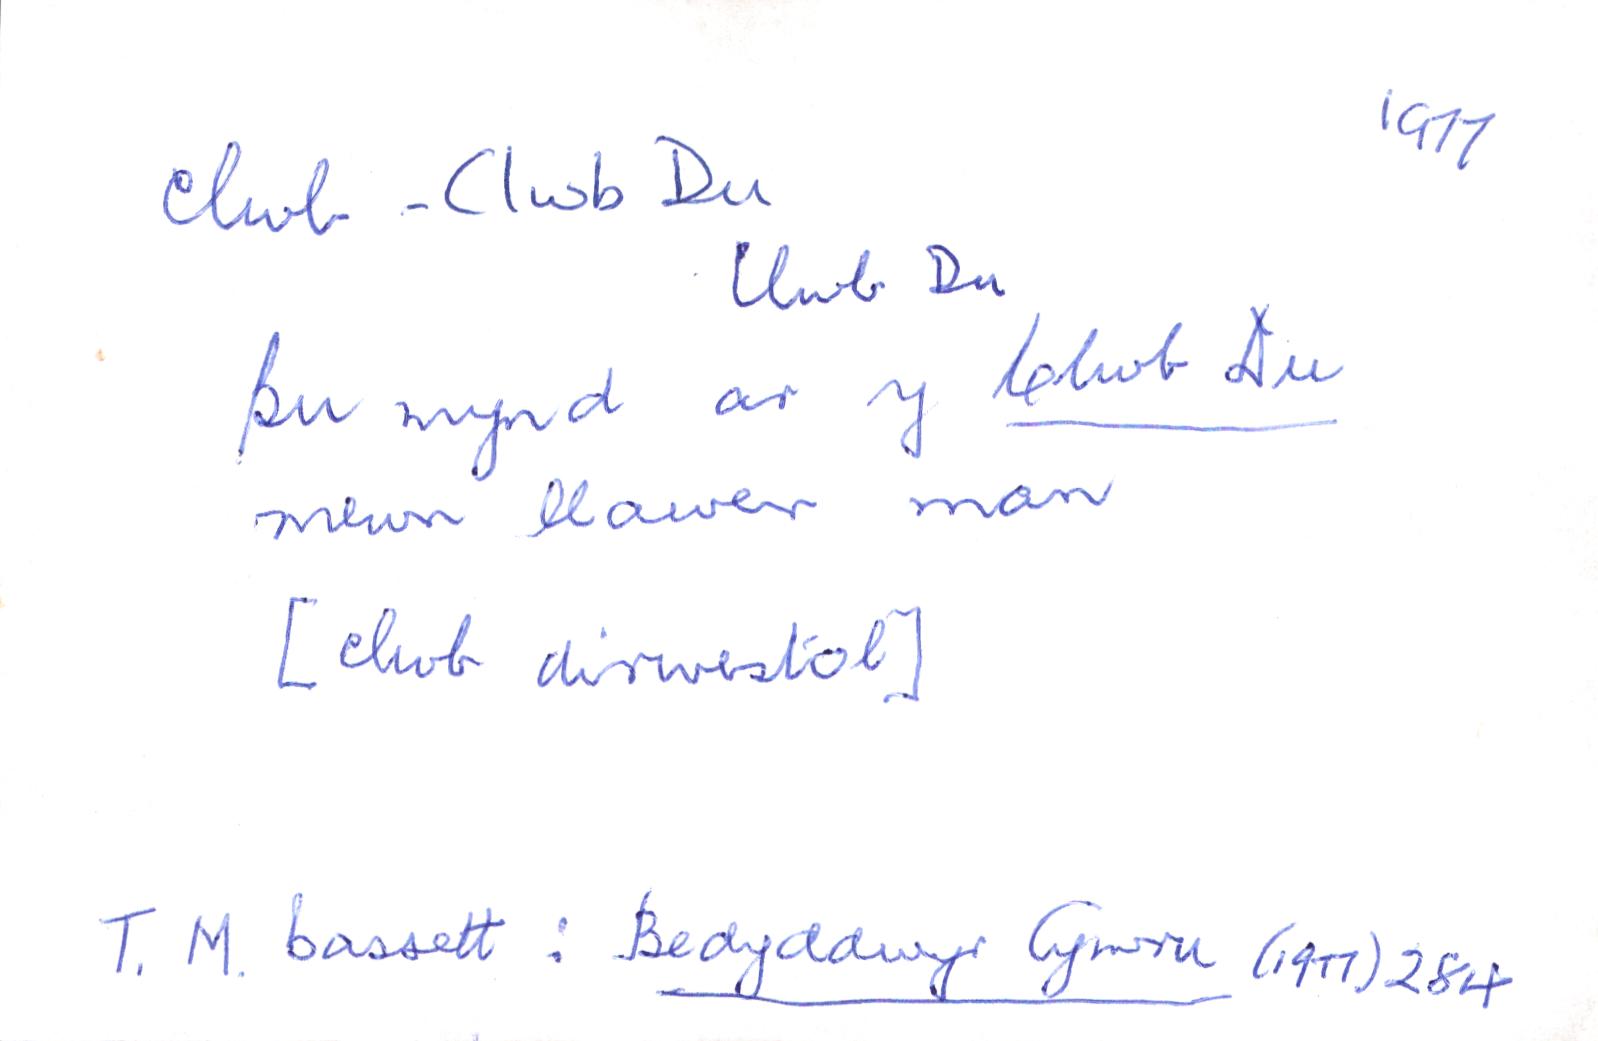 1977
clwb - Clwb Du
Clwb Du
bu mynd ar y Clwb Du
mewn llawer man
[clwb dirwestol]
T. M. bassett : Bedyddwyr Cymru (1977) 284